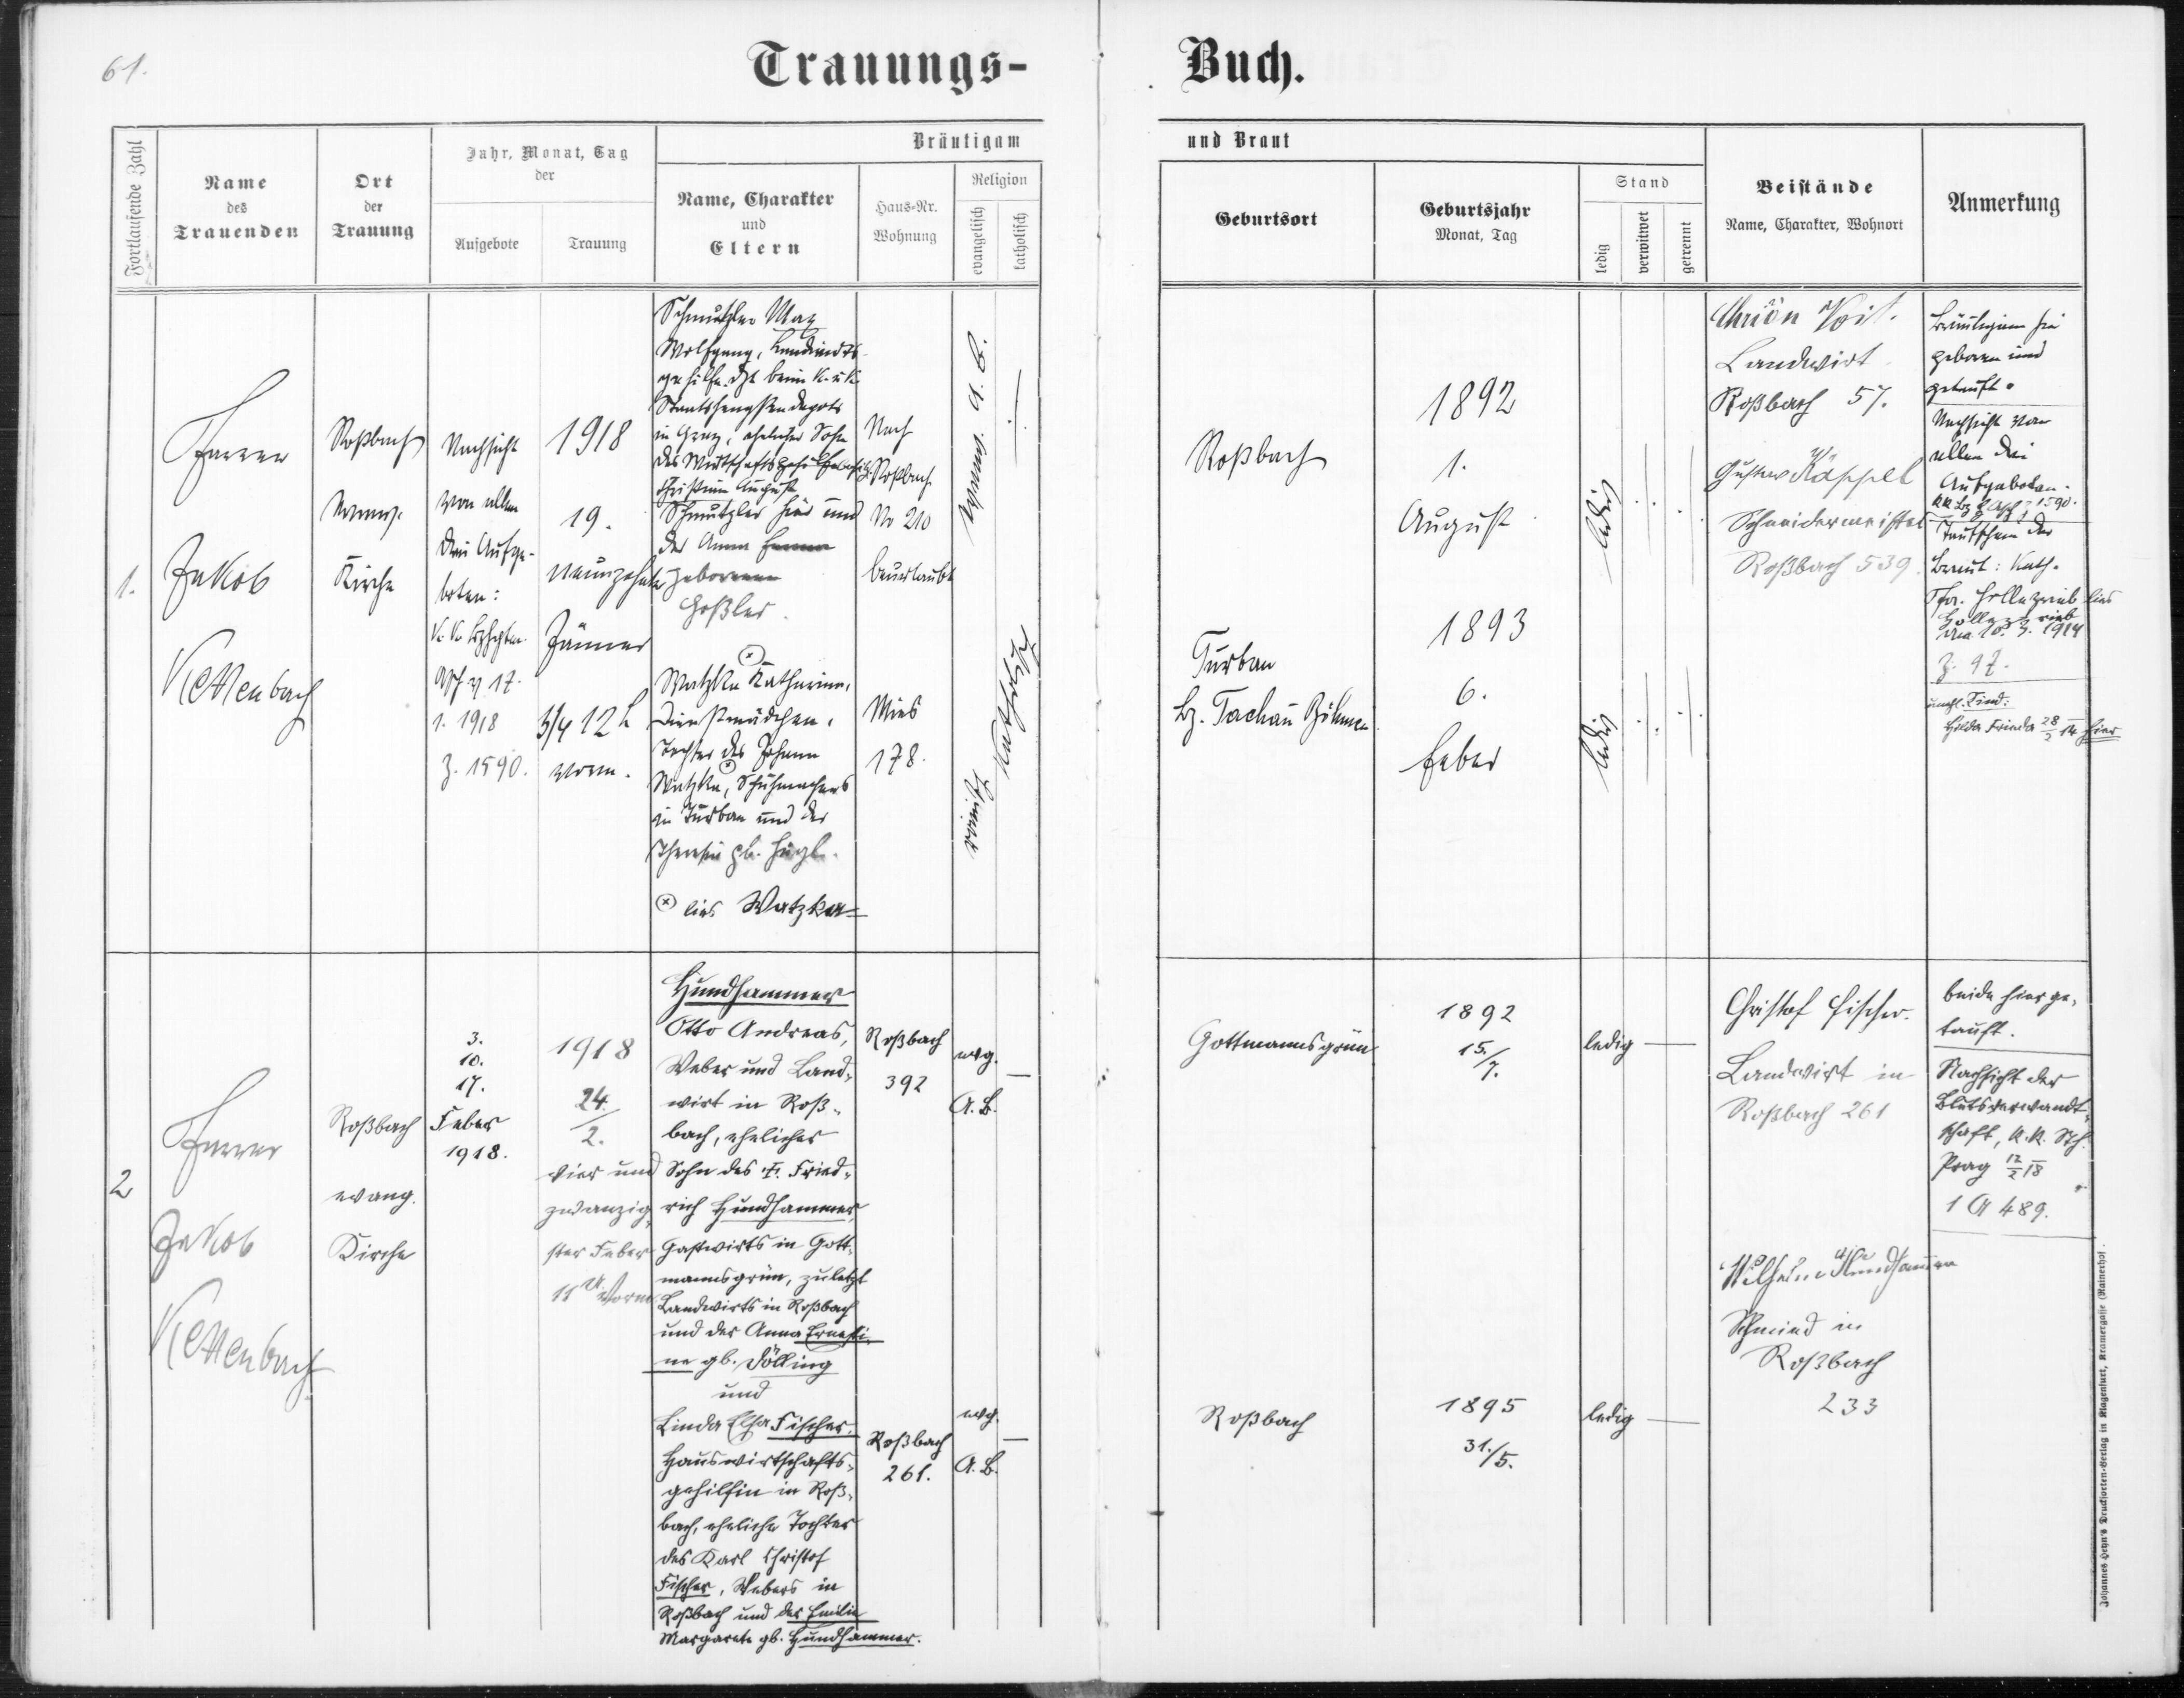 61.
Trauungs-
Buch.
Fortlaufende Zahl
Name
des
Trauenden
Ort
der
Trauung
Jahr, Monat, Tag
der
Aufgebote
Trauung
Bräutigam
Name, Charakter
und
Eltern
Haus-Nr.
Wohnung
Religion
evangelisch
katholisch
und Braut
Geburtsort
Geburtsjahr
Monat, Tag
Stand
ledig
verwitwet
getrennt
Beistände
Name, Charakter, Wohnort
Anmerkung
1.
Pfarrer
Jakob
Kettenbach
Roßbach
evang.
Kirche
Nachsicht
von allen
drei Aufge-
boten:
17.
1. 1918
Z. 1590.
1918
19.
neunzehnter
Jänner
3/4 12 h
vorm.
Schmutzler Max
Wolfgang,
beim k. u. k.
Staatshengstendepots
in Graz, ehelicher Sohn
des
Christian August
Schmutzler hier und
der Anna
geborenen
Goßler.
Watzka Katharina,
Dienstmädchen,
Tochter des Johann
Watzka, Schuhmachers
in Turban und der
Theresia gb.
lies Watzka
Nach
Roßbach
No 210
beurlaubt
Mies
178.
evang. A. B.
römisch katholisch
Roßbach
Turban
Bz. Tachau Böhmen
1892
1.
August
1893
6.
Feber
ledig
ledig
Voit.
Landwirt
Roßbach 57.
Gustav Käppel
Schneidermeister
Roßbach 539.
Bräutigam hier
geboren und
getauft.
Nachsicht von
allen drei
Aufgeboten.
1590.
Taufschein der
Braut: Kath.
Pfr. Hollezrieb lies
Hollezrieb
10. 3. 1914
Z. 97.
unehl. Kind:
Hilda Frieda 28/2 14 hier
2
Pfarrer
Jakob
Kettenbach
Roßbach
evang.
Kirche
3.
10.
17.
Feber
1918.
1918
24./2.
vier und
zwanzig-
ster Feber
11 U Vorm.
Hundhammer
Otto Andreas,
Weber und Land-
wirt in Roß-
bach, ehelicher
Sohn des †. Fried-
rich Hundhammer,
Gastwirts in Gott-
mannsgrün, zuletzt
Landwirts in Roßbach
und der Anna Ernesti-
ne gb. Dölling
und
Linda Elsa Fischer,
Hauswirtschafts-
gehilfin in Roß-
bach, eheliche Tochter
des Karl Christof
Fischer, Webers in
Roßbach und der Emilie
Margarete gb. Hundhammer.
Roßbach
392
Roßbach
261.
evg.
A. B.
evg.
A. B.
Gottmannsgrün
Roßbach
1892
15./7.
1895
31./5.
ledig
ledig
Christof Fischer.
Landwirt in
Roßbach 261
Wilhelm Hundhammer
Schmied in
Roßbach
233
beide hier ge-
tauft.
Nachsicht der
Blutsverwandt-
schaft, k. k. Sth.
Prag 12/2 18
1 A 489.
Johannes Heyn's Drucksorten-Verlag in Klagenfurt, Kramergasse (Rainerhof).